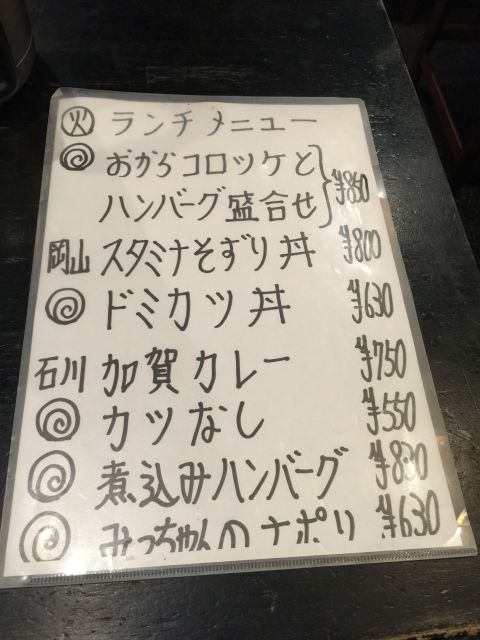 火 ランチメニュー
おからコロッケと
ハンバーグ盛合せ ¥850
岡山 スタミナそずり丼 ¥800
ドミカツ丼 ¥630
石川 加賀カレー ¥750
カツなし ¥550
煮込みハンバーグ ¥830
みっちゃんのナポリ ¥630